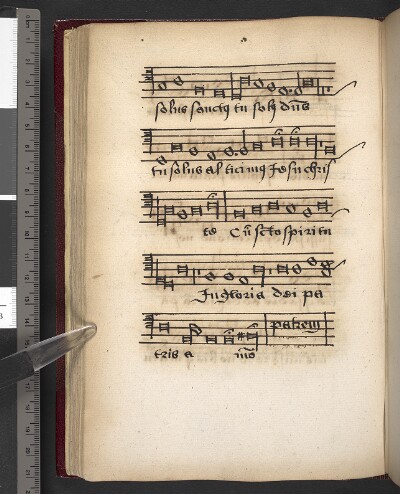 solus sanctus tu solus dns
tu solus al tissimus Jesu chris
te Cu scto spiritu
In gloria dei pa
patrem
tris a